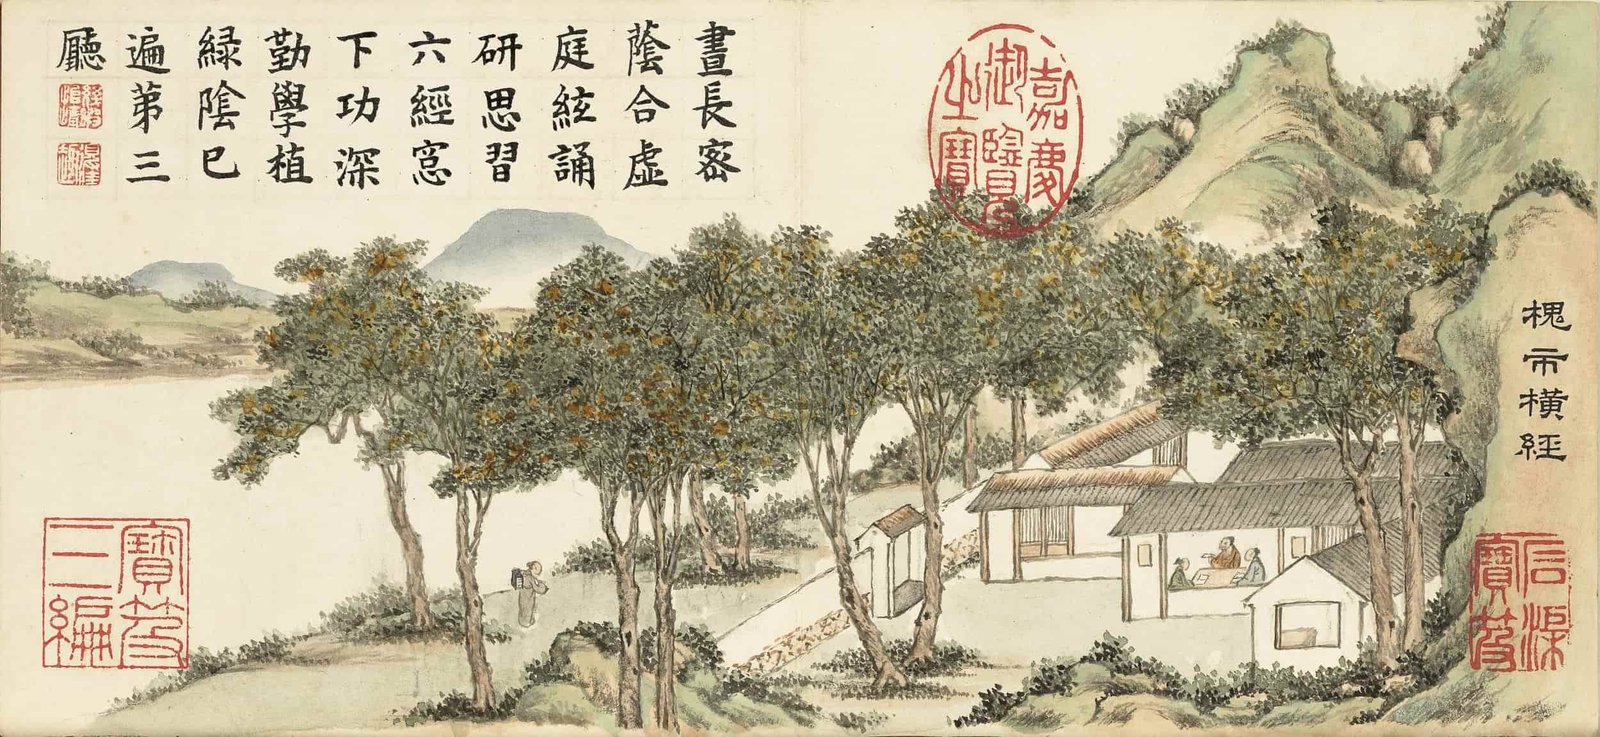 槐市橫經
石渠
寶笈
嘉慶
御覽
之寶
晝長密
蔭合虛
庭絃誦
研思習
六經窓
下功深
勤學植
綠陰已
遍第三
廳
寶笈
三編